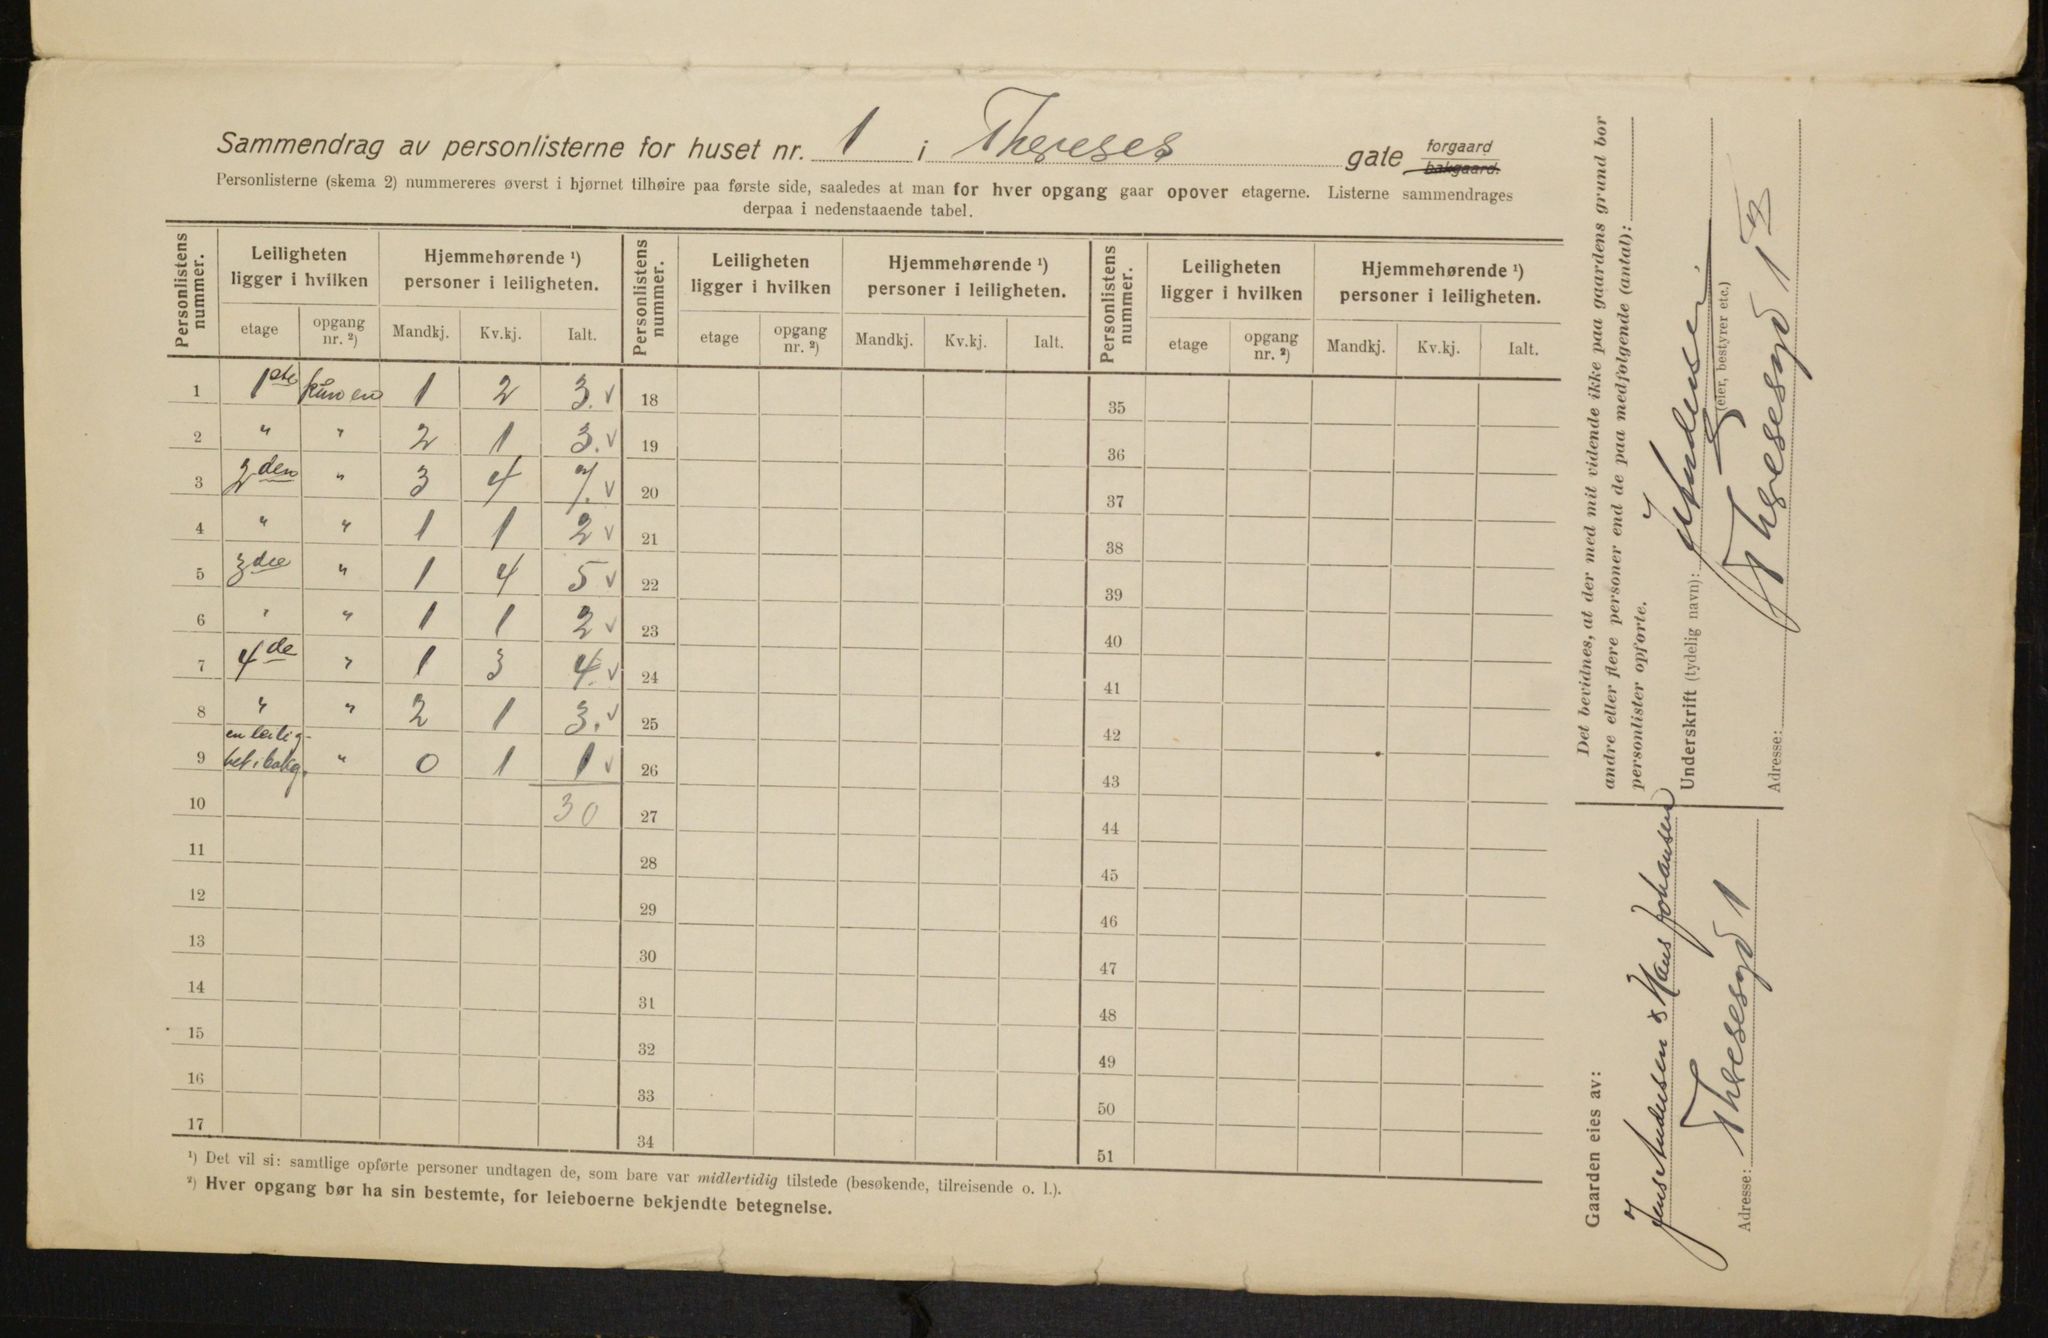 Sammendrag av personlisterne for huset nr. 1 i Thereses gate forgaard
bakgaard.
Personlisterne (skema 2) nummereres øverst i hjørnet tilhøire paa første side, saaledes at man for hver opgang gaar opover etagerne. Listerne sammendrages
derpaa i nedenstaaende tabel.
Personlistens nummer. Leiligheten ligger i hvilken Hjemmehørende ¹) personer i leiligheten. Personlistens nummer. Leiligheten ligger i hvilken Hjemmehørende ¹) personer i leiligheten. Personlistens nummer. Leiligheten ligger i hvilken Hjemmehørende ¹) personer i leiligheten.
etage opgang nr. ²) Mandkj. Kv.kj. Ialt. etage opgang nr. ²) Mandkj. Kv.kj. Ialt. etage opgang nr. ²) Mandkj. Kv.kj. Ialt.
1 1ste kun en 1 2 3. √ 18 35
2 " " 2 1 3. √ 19 36
3 2den " 3 4 7. √ 20 37
4 " " 1 1 2 √ 21 38
5 3die " 1 4 5 √ 22 39
6 " " 1 1 2 √ 23 40
7 4de " 1 3 4. √ 24 41
8 " " 2 1 3. √ 25 42
9 en leilig-
het i bakg. " 0 1 1 √ 26 43
10 30 27 44
11 28 45
12 29 46
13 30 47
14 31 48
15 32 49
16 33 50
17 34 51
¹) Det vil si: samtlige opførte personer undtagen de, som bare var midlertidig tilstede (besøkende, tilreisende o. l.).
²) Hver opgang bør ha sin bestemte, for leieboerne bekjendte betegnelse.
Det bevidnes, at der med mit vidende ikke paa gaardens grund bor
andre eller flere personer end de paa medfølgende (antal):
personlister opførte.
Underskrift (tydelig navn): J Andersen
(eier, bestyrer etc.)
Adresse: Theresesgd 1
Gaarden eies av:
Jens Andersen & Hans Johansen
Adresse: Theresesgd 1